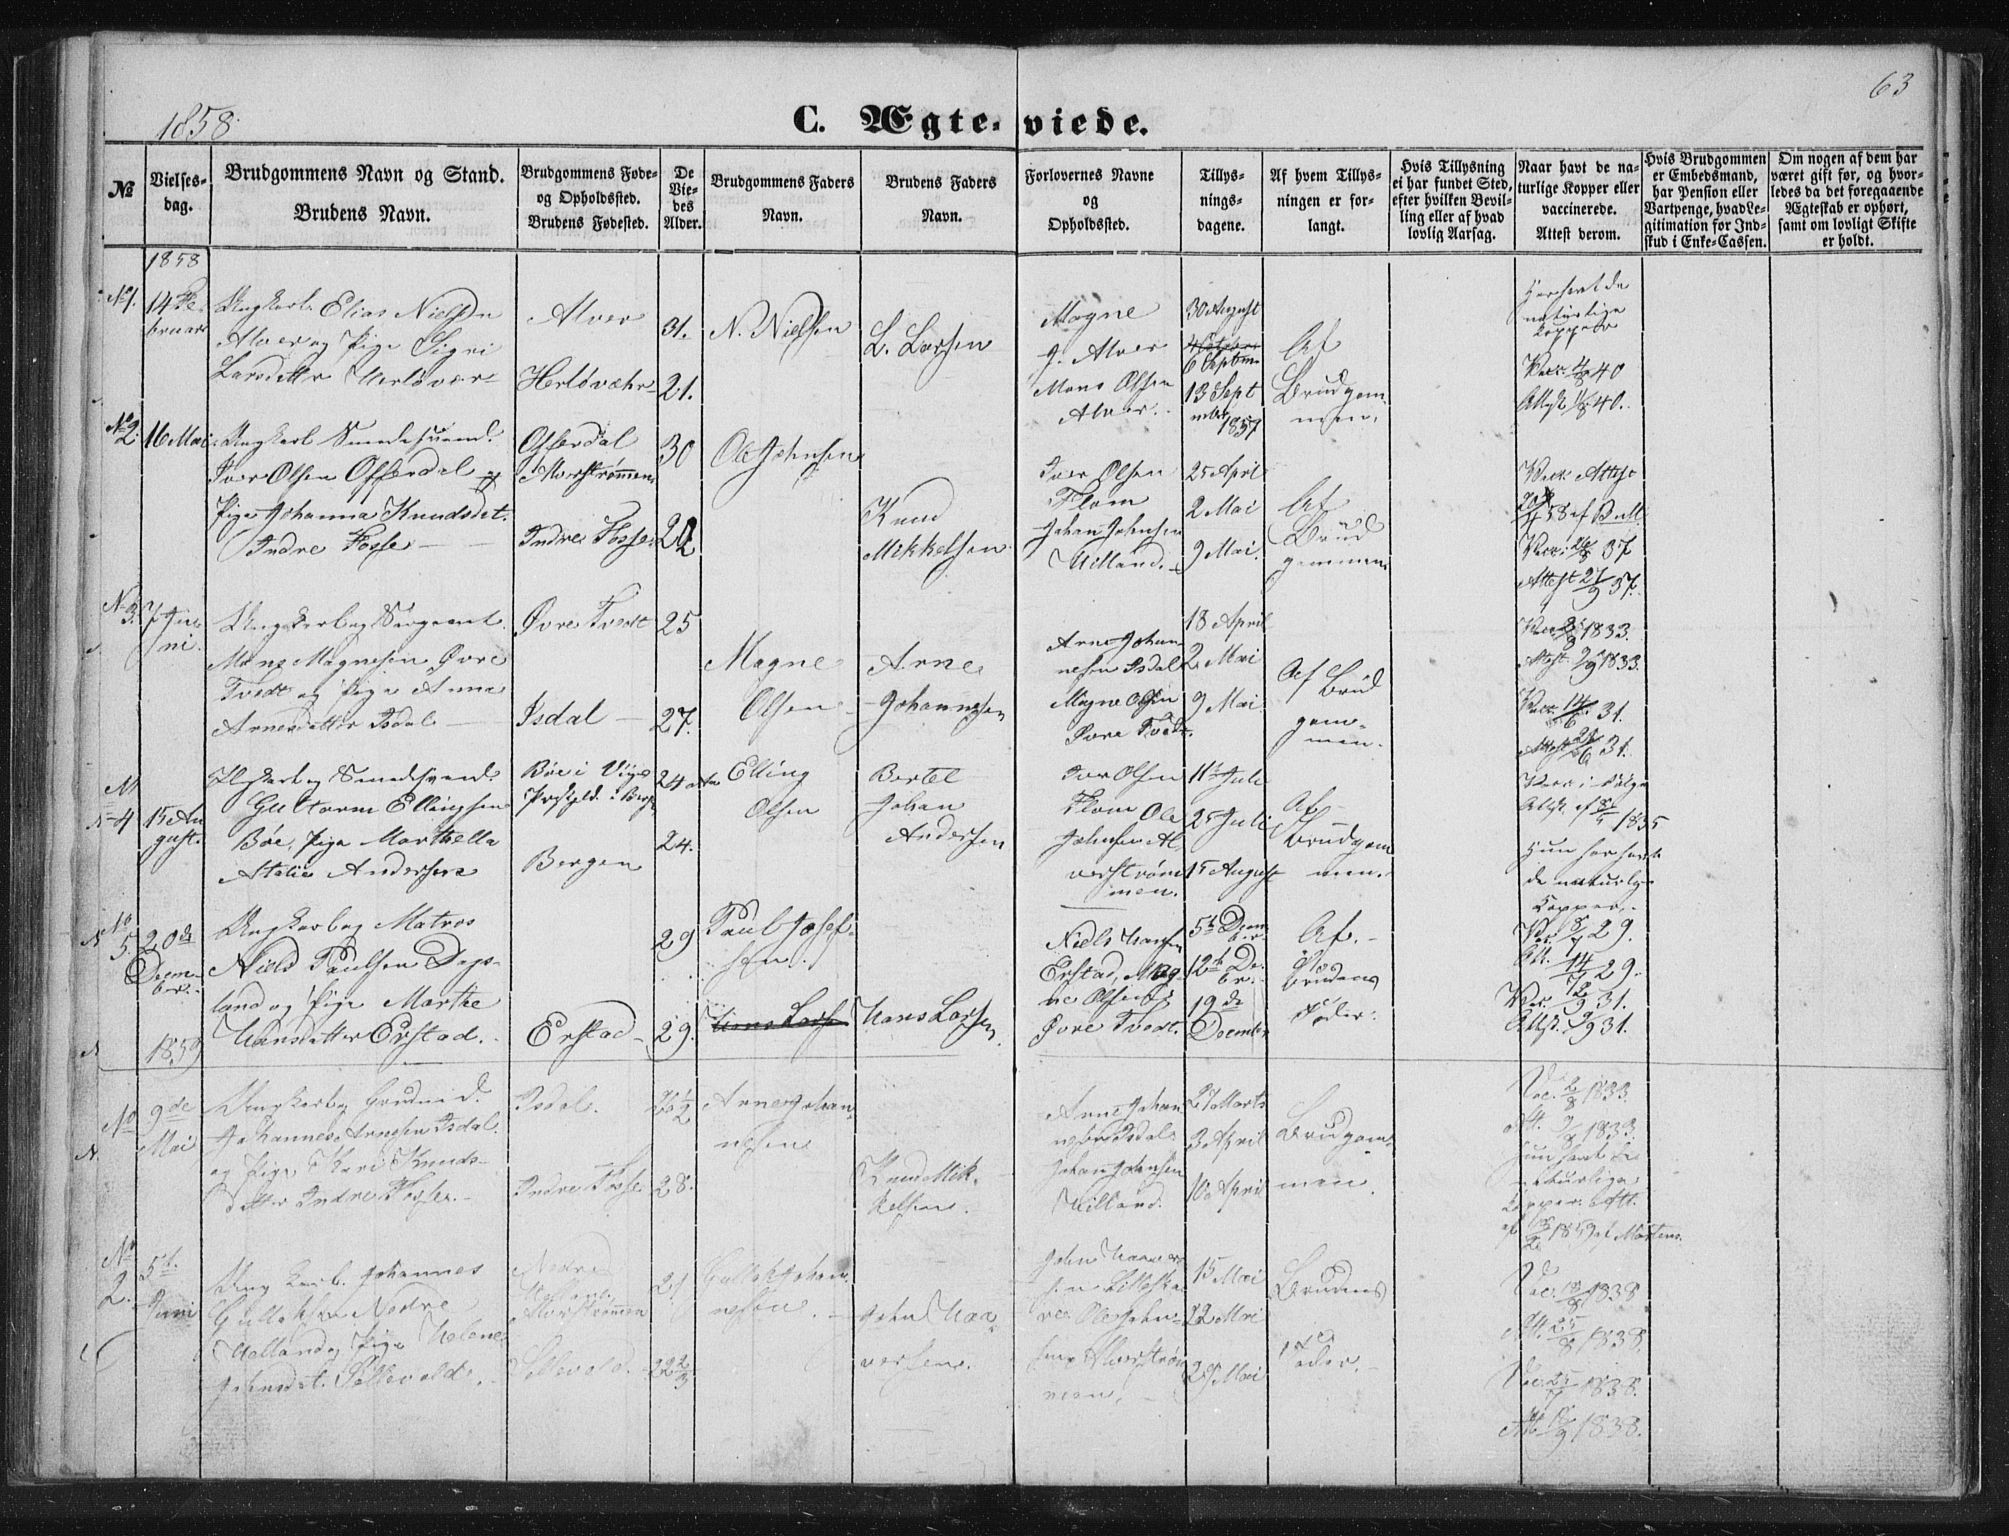 63
1858.
C. Ægteviede.
№
Vielsesdag.
Brudgommens Navn og Stand.
Brudens Navn.
Brudgommens Føde-
og Opholdssted.
Brudens Fødested.
De
Vie-
des
Alder.
Brudgommens Faders
Navn.
Brudens Faders
Navn.
Forlovernes Navne
og
Opholdssted.
Tillys-
nings-
dagene.
Af hvem Tillys-
ningen er for-
langt.
Hvis Tillysning
ei har fundet Sted,
efter hvilken Bevil-
ling eller af hvad
lovlig Aarsag.
Naar havt de na-
turlige Kopper eller
vaccinerede.
Attest derom.
Hvis Brudgommen
er Embedsmand,
har Pension eller
Vartpenge, hvad Le-
gitimation for Ind-
skud i Enke-Cassen.
Om nogen af dem har
været gift før, og hvor-
ledes da det foregaaende
Ægteskab er ophørt,
samt om lovligt Skifte
er holdt.
1858
No 1.
14 Fe-
bruar
Ungkarl Elias Nielsen
Alver og Pige Signi
Larsdatter Herløvær
Alver
Herløvæhr
31.
21.
N. Nielsen
L. Larsen
Magne
J. Alver
Mons Olsen
Alver.
30 August
6 Septem
13 Sept
mber
1857
Af
Brudgom
men.
Han havt de
naturlige
Kopper
No 2.
16 Mai
Ungkarl Smedesvend
Iver Olsen Offerdal og
Pige Johanna Knudsdat.
Indre Fosse
Offerdal
Alverstrømmen
Indre Fosse
30
Ole Johnsen
Knud
Mikkelsen
Iver Olsen
Flom
Johan Johnsen
Uilland.
25 April
2 Mai
9 Mai.
Af
Brud
gommen
Vac. Attest
Vac. 26/8 37
Attest 27/9 37.
No 3.
7 Ju-
ni.
Ungkarl og Sergeant
Mons Magnesen Øvre
Tvedt og Pige Anna
Arnesdatter Isdal
Øvre Tvedt
Isdal
25
27.
Magne
Olsen
Arne
Johannesen
Arne Johan
nesen Isdal
Magne Olsen
Øvre Tvedt.
18 April
2 Mai
9 Mai
Af Brud
gom-
men.
1833.
1833.
31.
31.
4
15 Au
gust.
Ungkarl og Smedsvend
Guttorm Ellingsen
Böe, Pige Marthella
Atalie Andersen
Böe i Viig
Bergen
24
24.
Elling
Olsen
Bertel
Johan
Andersen
Iver Olsen
Flom Ole
Johnsen Al
verstrøm
men.
11te Juli
25 Juli
15 August
Af
Brudgom
men.
1835
Hun har havt
de naturlige
Kopper.
No 5
20de
Decem-
ber.
Ungkarl og Matros
Niels Paulsen Dags-
land og Pige Marthe
Hansdatter Erstad.
Erstad
29
29.
Paul Josef-
sen.
Hans Larsen
Niels Hansen
Erstad, Mag-
ne Olsen
Øvre Tvedt.
5te Decem
ber
12te De-
br.
19de
December
Af
Brudens
Fader.
29.
29.
31.
31.
1859
No
9de
Mai
Ungkarl og Gaardmd.
Johannes Arnesen Isdal
og Pige Kari Knuds-
datter Indre Fosse.
Isdal.
Indre Fosse
28.
Arne Johan-
nesen
Knud Mik-
kelsen.
Arne Johan
nesen Isdal
Johan Johnsen
Uilland.
27 Marts
3 April
10 April
Brudgom-
men.
1833.
1833.
Hun havt de
naturlige
Kopper. Att.
No
2.
5te
Juni
Ung karl Johannes
Gulleksen Nedre
Uelland og Pige Helene
Johnsdt. Sellevold.
Nedre
Alverstrømmen
Sellevold.
22 2/3
Gullek Johan-
nesen.
John Haa-
versen.
John Haaver
ver Ole John-
sen Alverstrøm
men.
15 Mai
22 Mai
29 Mai
Brudens
Fader.
1838
1838.
1838.
1838.